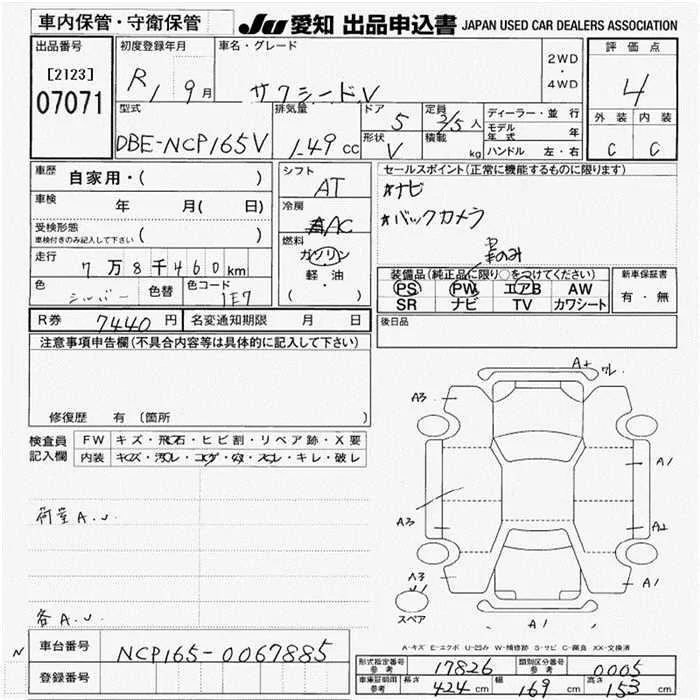 車内保管・守衛保管
JU 愛知 出品申込書 JAPAN USED CAR DEALERS ASSOCIATION
出品番号
[2123]
07071
初度登録年月
R1 9月
車名・グレード
サクシードV
2WD
・
4WD
評価点
4
外装 内装
C C
型式
DBE-NCP165V
排気量
1.49 cc
ドア
5
形状
V
定員
2/5人
積載
kg
ディーラー・並行
モデル年式 年
ハンドル 左・右
車歴
自家用・( )
車検
年 月( 日)
受検形態
車検付きのみ記入して下さい ( )
走行
7万8千460km
色
シルバー
色替
色コード
1E7
シフト
AT
冷房
AC
燃料
ガソリン
軽・油
( ・ )
セールスポイント(正常に機能するものに限ります)
*ナビ
*バックカメラ
装備品(純正品に限り○をつけてください)
PS PW エアB AW
SR ナビ TV カワシート
新車保証書
有・無
R券 7440円
名変通知期限 月 日
後日品
注意事項申告欄(不具合内容等は具体的に記入して下さい)
修復歴 有 (箇所 )
検査員記入欄
FW キズ・飛石・ヒビ割・リペア跡・X要
内装 キズ・汚レ・コゲ・穴・スレ・キレ・破レ
荷室A.U.
各A.U.
A+ ワレ
A3
A1
A3
A2
A3
A1
A1
スペア
A-キズ E-エクボ U-凹み W-補修跡 S-サビ C-腐食 XX-交換済
N
車台番号 NCP165-0067885
登録番号
形式指定番号 参考 17826
類別区分番号 参考 0005
車庫証明用 参考 長さ 424 cm 幅 169 cm 高さ 153 cm